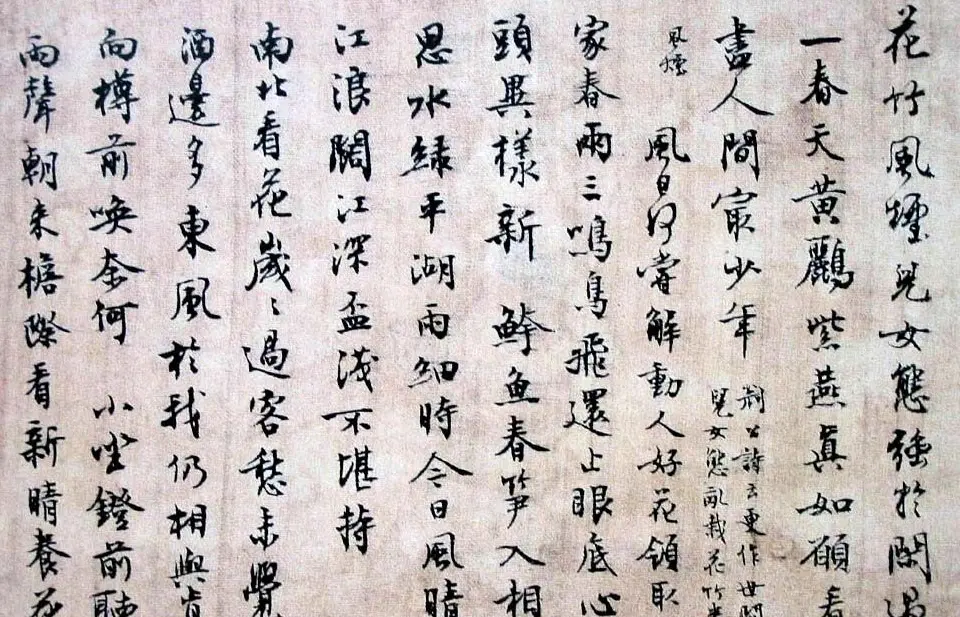 花竹風煙兒女態強於閑過
一春天黃鸝紫燕真如願看
盡人間最少年
荊公詩云更作世間
兒女態亂栽花竹養
風煙
風日何嘗解動人好花領取
家春兩三鳴鳥飛還止眼底心
頭異樣新 魚春筍入相
思水綠平湖雨細時今日風晴
江浪闊江深盃淺不堪持
南北看花歲〻過客愁未覺
酒邊多東風於我仍相與肯
向樽前喚奈何 小坐鐙前聽
雨聲朝來檐際看新晴養花